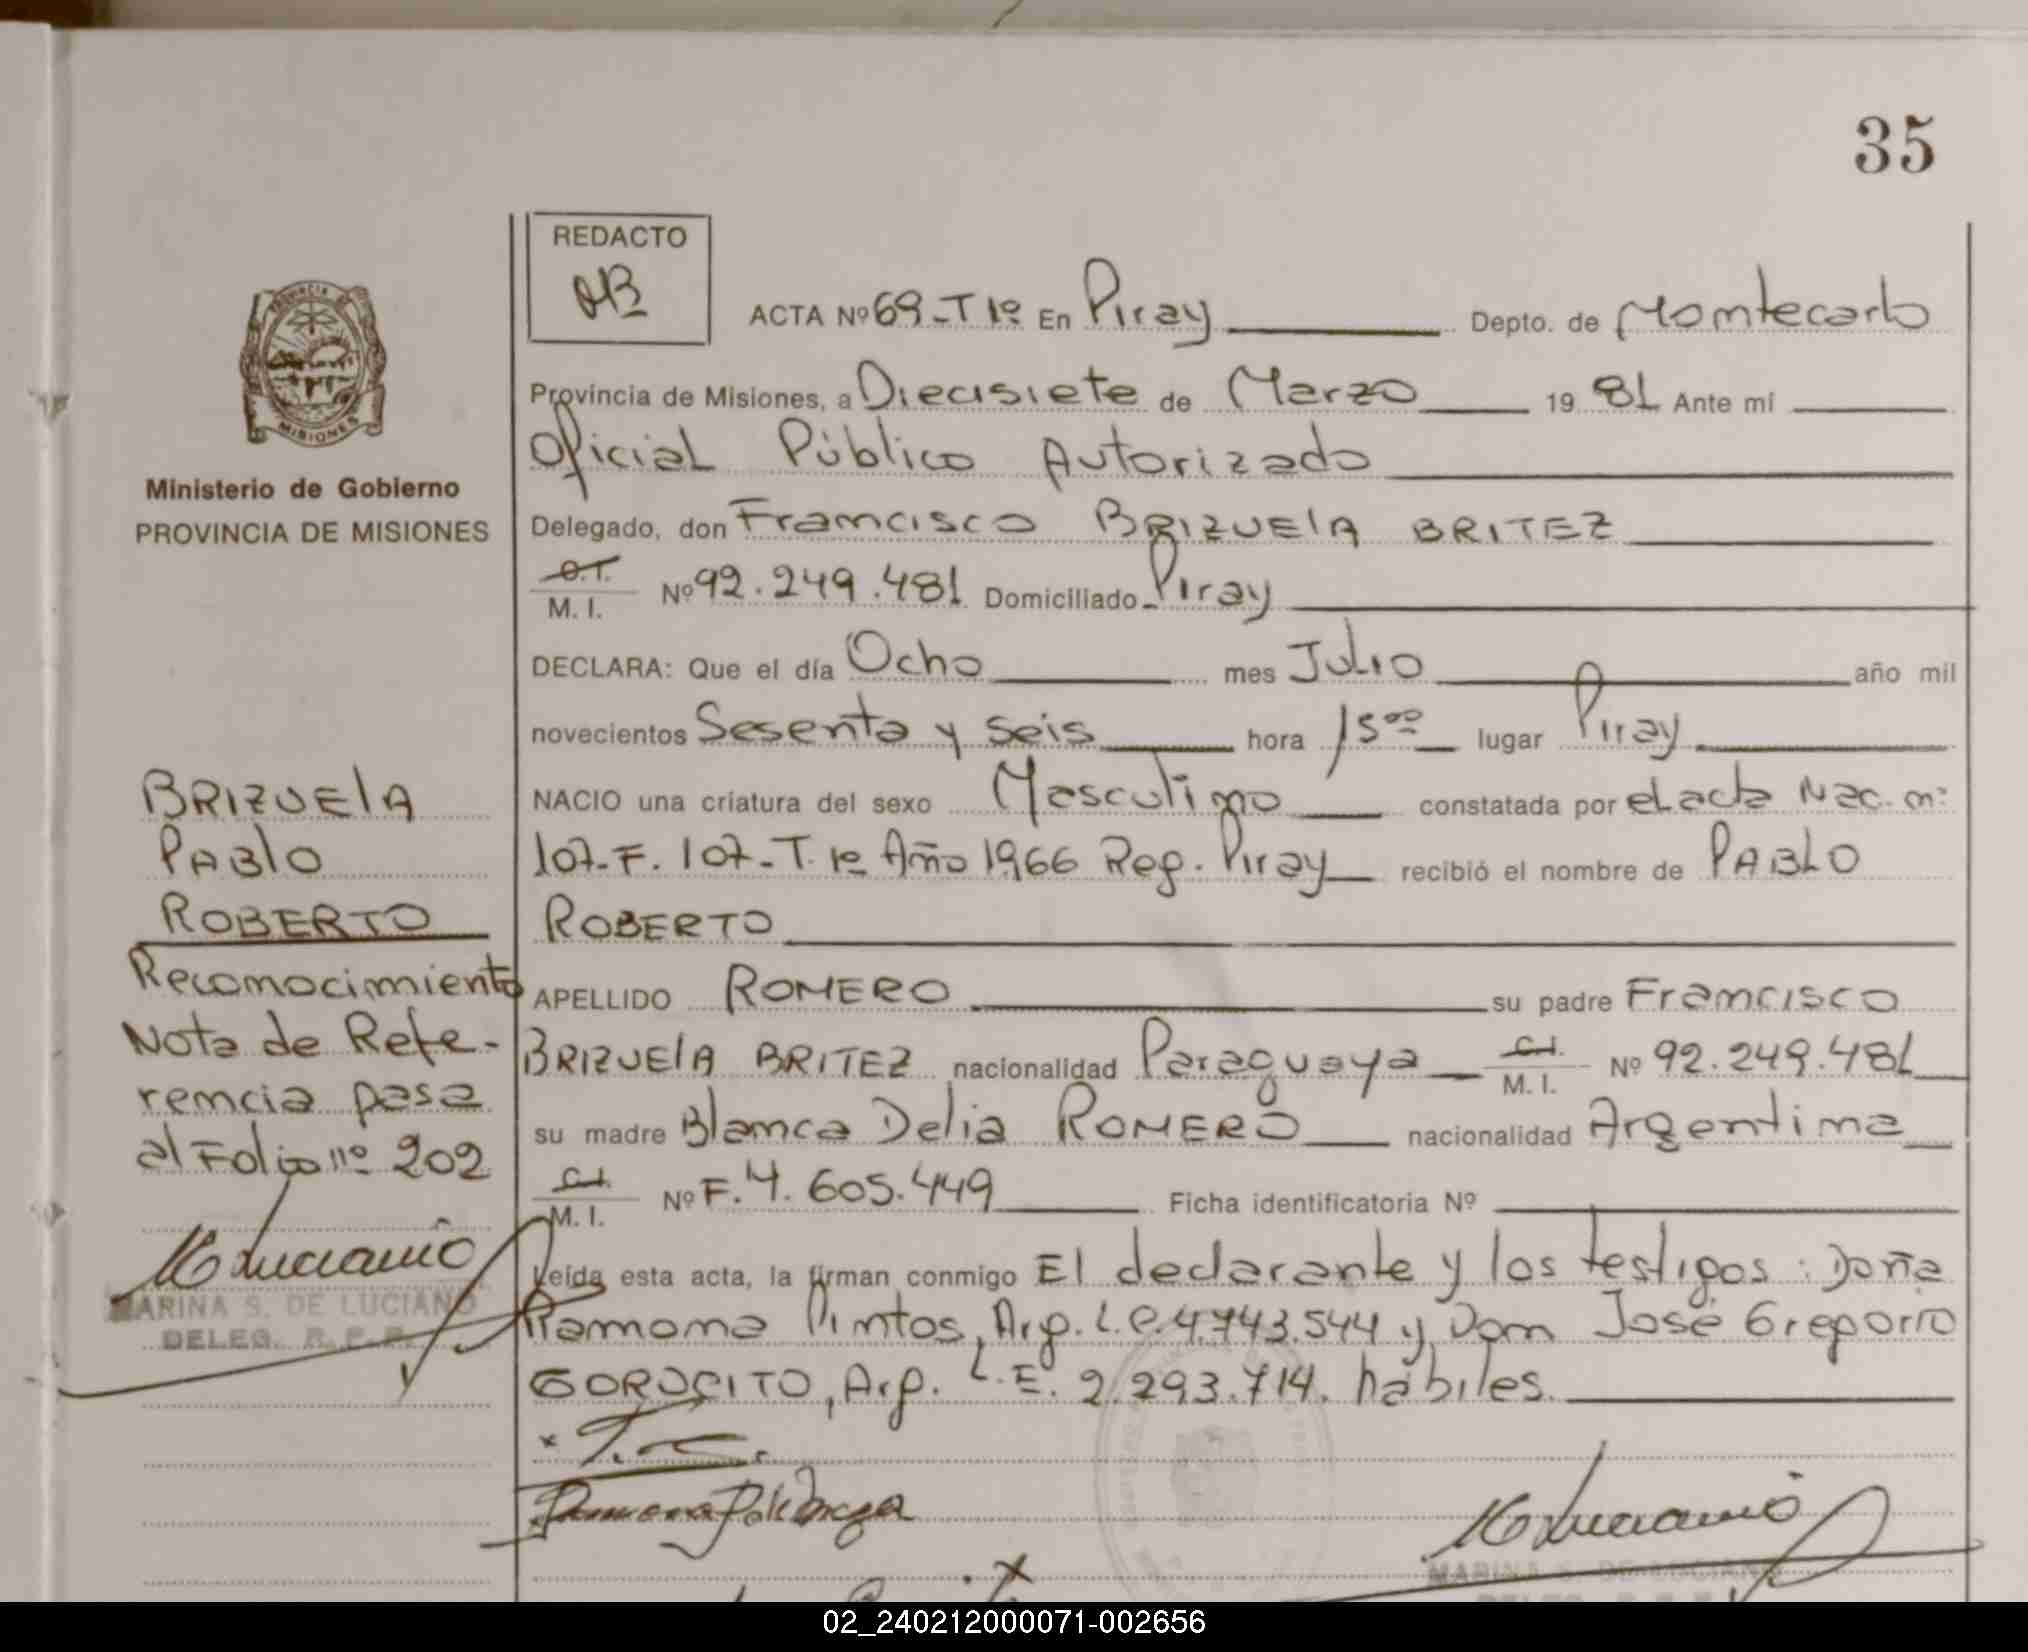 35
REDACTO
ACTA Nº 69-T 1º En Piray Depto. de Montecarlo
Provincia de Misiones, a Diecisiete de Marzo 1981 Ante mí
Oficial Público Autorizado
Delegado, don Francisco BRIZUELA BRITEZ
C.I.
M. I. Nº 92.249.481 Domiciliado Piray
DECLARA: Que el día Ocho mes Julio año mil
novecientos Sesenta y seis hora 15ºº lugar Piray
NACIO una criatura del sexo Masculino constatada por el acta Nac. nº
107-F. 107-T. 1º Año 1966 Reg. Piray recibió el nombre de PABLO
ROBERTO
APELLIDO ROMERO su padre Francisco
BRIZUELA BRITEZ nacionalidad Paraguaya C.I. M. I. Nº 92.249.481
su madre Blanca Delia ROMERO nacionalidad Argentina
C.I.
M. I. Nº F.4.605.449 Ficha identificatoria Nº
Leída esta acta, la firman conmigo El declarante y los testigos: Doña
Ramona Pintos, Arg. L.C. 4.743.544 y Don José Gregorio
GOROCITO, Arg. L.E. 2.293.714. hábiles.
PROVINCIA DE
MISIONES
Ministerio de Gobierno
PROVINCIA DE MISIONES
BRIZUELA
PABLO
ROBERTO
Reconocimiento
Nota de Refe-
rencia pasa
al Folio nº 202
MARINA S. DE LUCIANO
DELEG. R. P. P.
MARINA S. DE LUCIANO
02_240212000071-002656